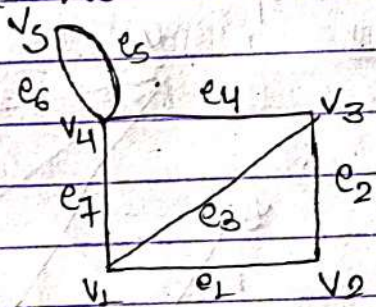 v5 e5
e6 e4 v3
v4
e7 e3 e2
v1 e1 v2